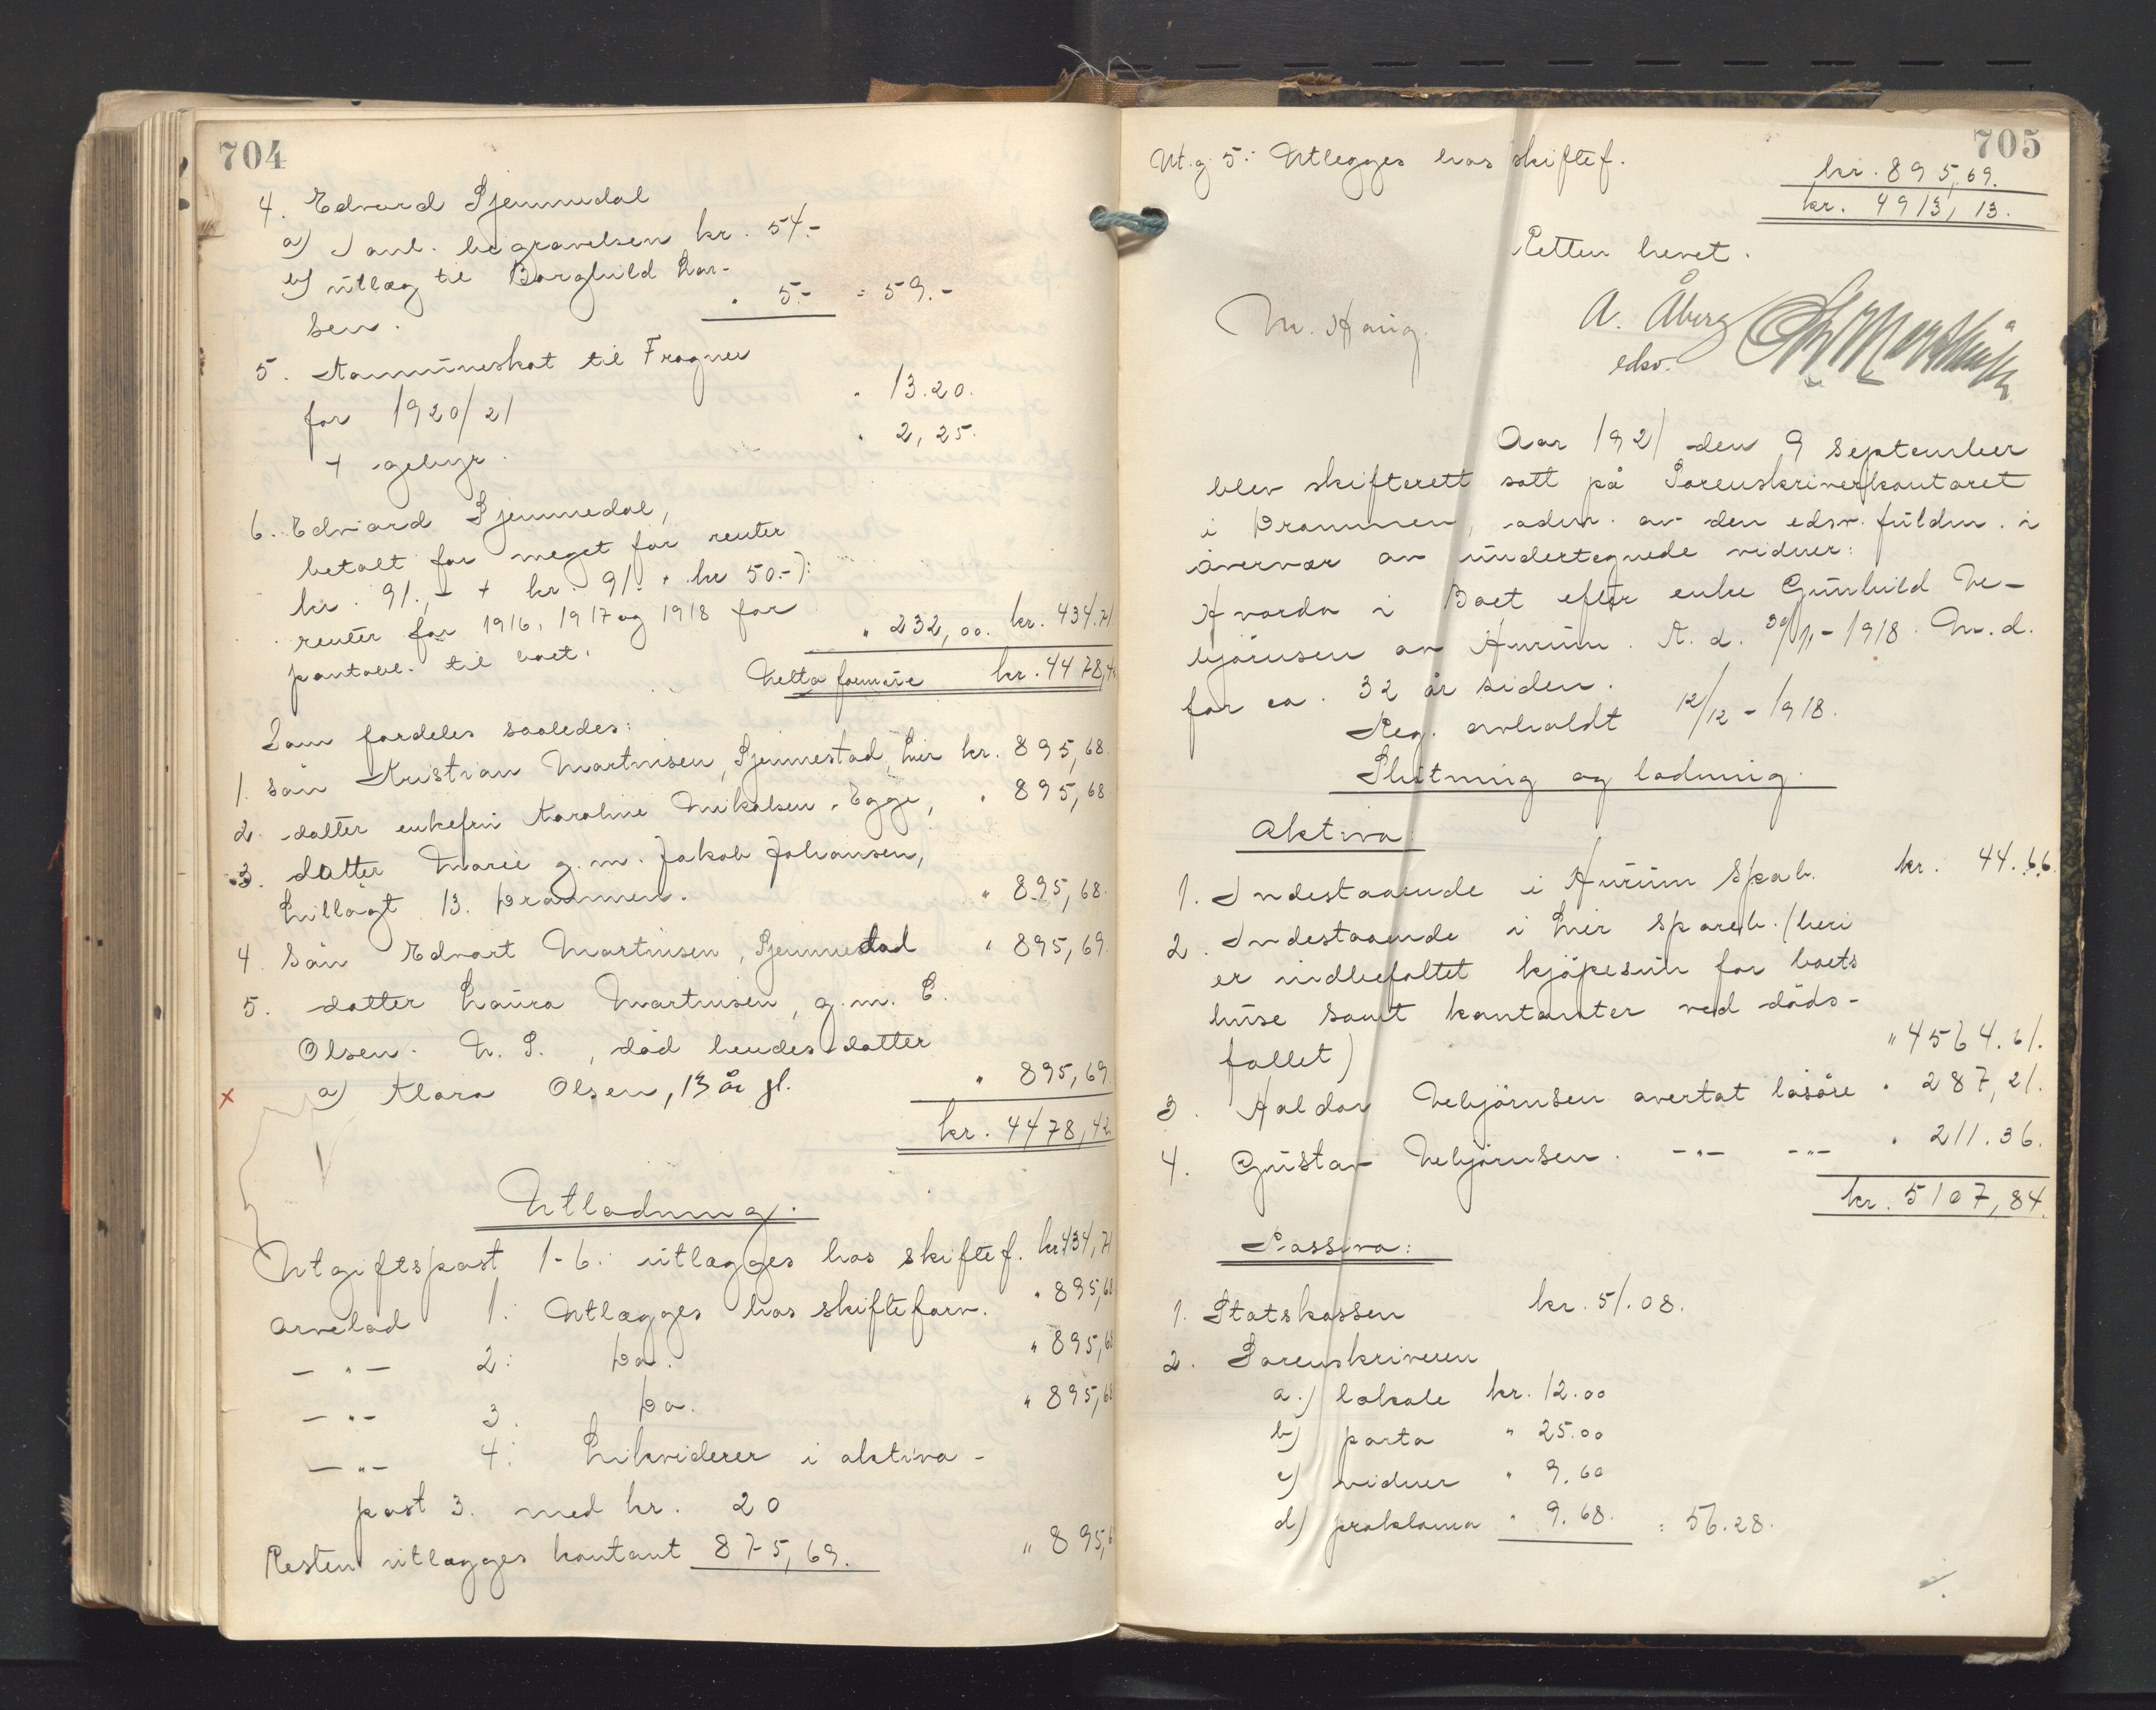 704
4. Edvard Gjennedal
a) I anl. begravelsen kr. 54.-
b) utlæg til Borghild Lar-
sen. " 5.- = 59.-
5. Kommuneskat til Frogner
for 1920/21 " 13.20.
+ gebyr. " 2,25.
6. Edvard Gjennedal,
betalt for meget for renter
kr. 91,- + kr. 91.- + kr 50.-):
renter for 1916, 1917 og 1918 for
pantobl. til boet. " 232,00. kr. 434.71
Netto formue kr. 4478,42
Som fordeles saaledes:
1. sön Kristian Martinsen, Gjennestad, Lier kr. 895,68
2. datter enkefru Karoline Mikalsen, Egge, " 895,68
3. datter Marie g.m. Jakob Johansen,
Lillögt 13. Drammen. " 895,68.
4. Sön Edvart Martinsen, Gjennestad " 895,69.
5. datter Laura Martinsen, g.m. C.
Olsen. N. S., död hendes datter
x a) Klara Olsen, 13 år gl. " 895,69
kr. 4478,42
Utlodning.
Utgiftspost 1-6: utlægges hos skiftef. kr 434,71
Arvelod 1: Utlægges hos skifteforv. " 895,68
- " - 2: Do. " 895,68
- " - 3. Do. " 895,68
- " - 4: Likviderer i aktiva-
post 3. med kr. 20
Resten utlægges kontant 875,69. " 895,6
705
Ut.g. 5: Utlegges hos skiftef. kr. 895,69.
kr. 4913,13.
Retten hevet.
M. Haug. A. Åberg
edsv.
Aar 1921 den 9 september
blev skifterett satt på Sorenskriverkontoret
i Drammen, adm. av den edsv. fuldm. i
overvær av undertegnede vidner:
Hvorda i Boet efter enke Gunhild Ve-
björnsen av Hurum. A. d. 30/11-1918. M. d.
for ca. 32 år siden.
Reg. avholdt 12/12-1918.
Slutning og lodning.
Aktiva:
1. Indestaaende i Hurum Spab. kr. 44.66
2. Indestaaende i Lier spareb. (heri
er indbefattet kjöpesum for boets
huse samt kontanter ved döds-
fallet) " 4564.61.
3. Haldor Vebjörnsen overtat lösöre " 287,21.
4. Gustav Vebjörnsen. -"- -"- " 211.36.
kr. 5107,84.
Passiva:
1. Statskassen kr. 51.08.
2. Sorenskriveren
a.) lokale kr. 12.00
b) porto " 25.00
c) vidner " 9.60
d) proklama " 9.68. = 56.28.